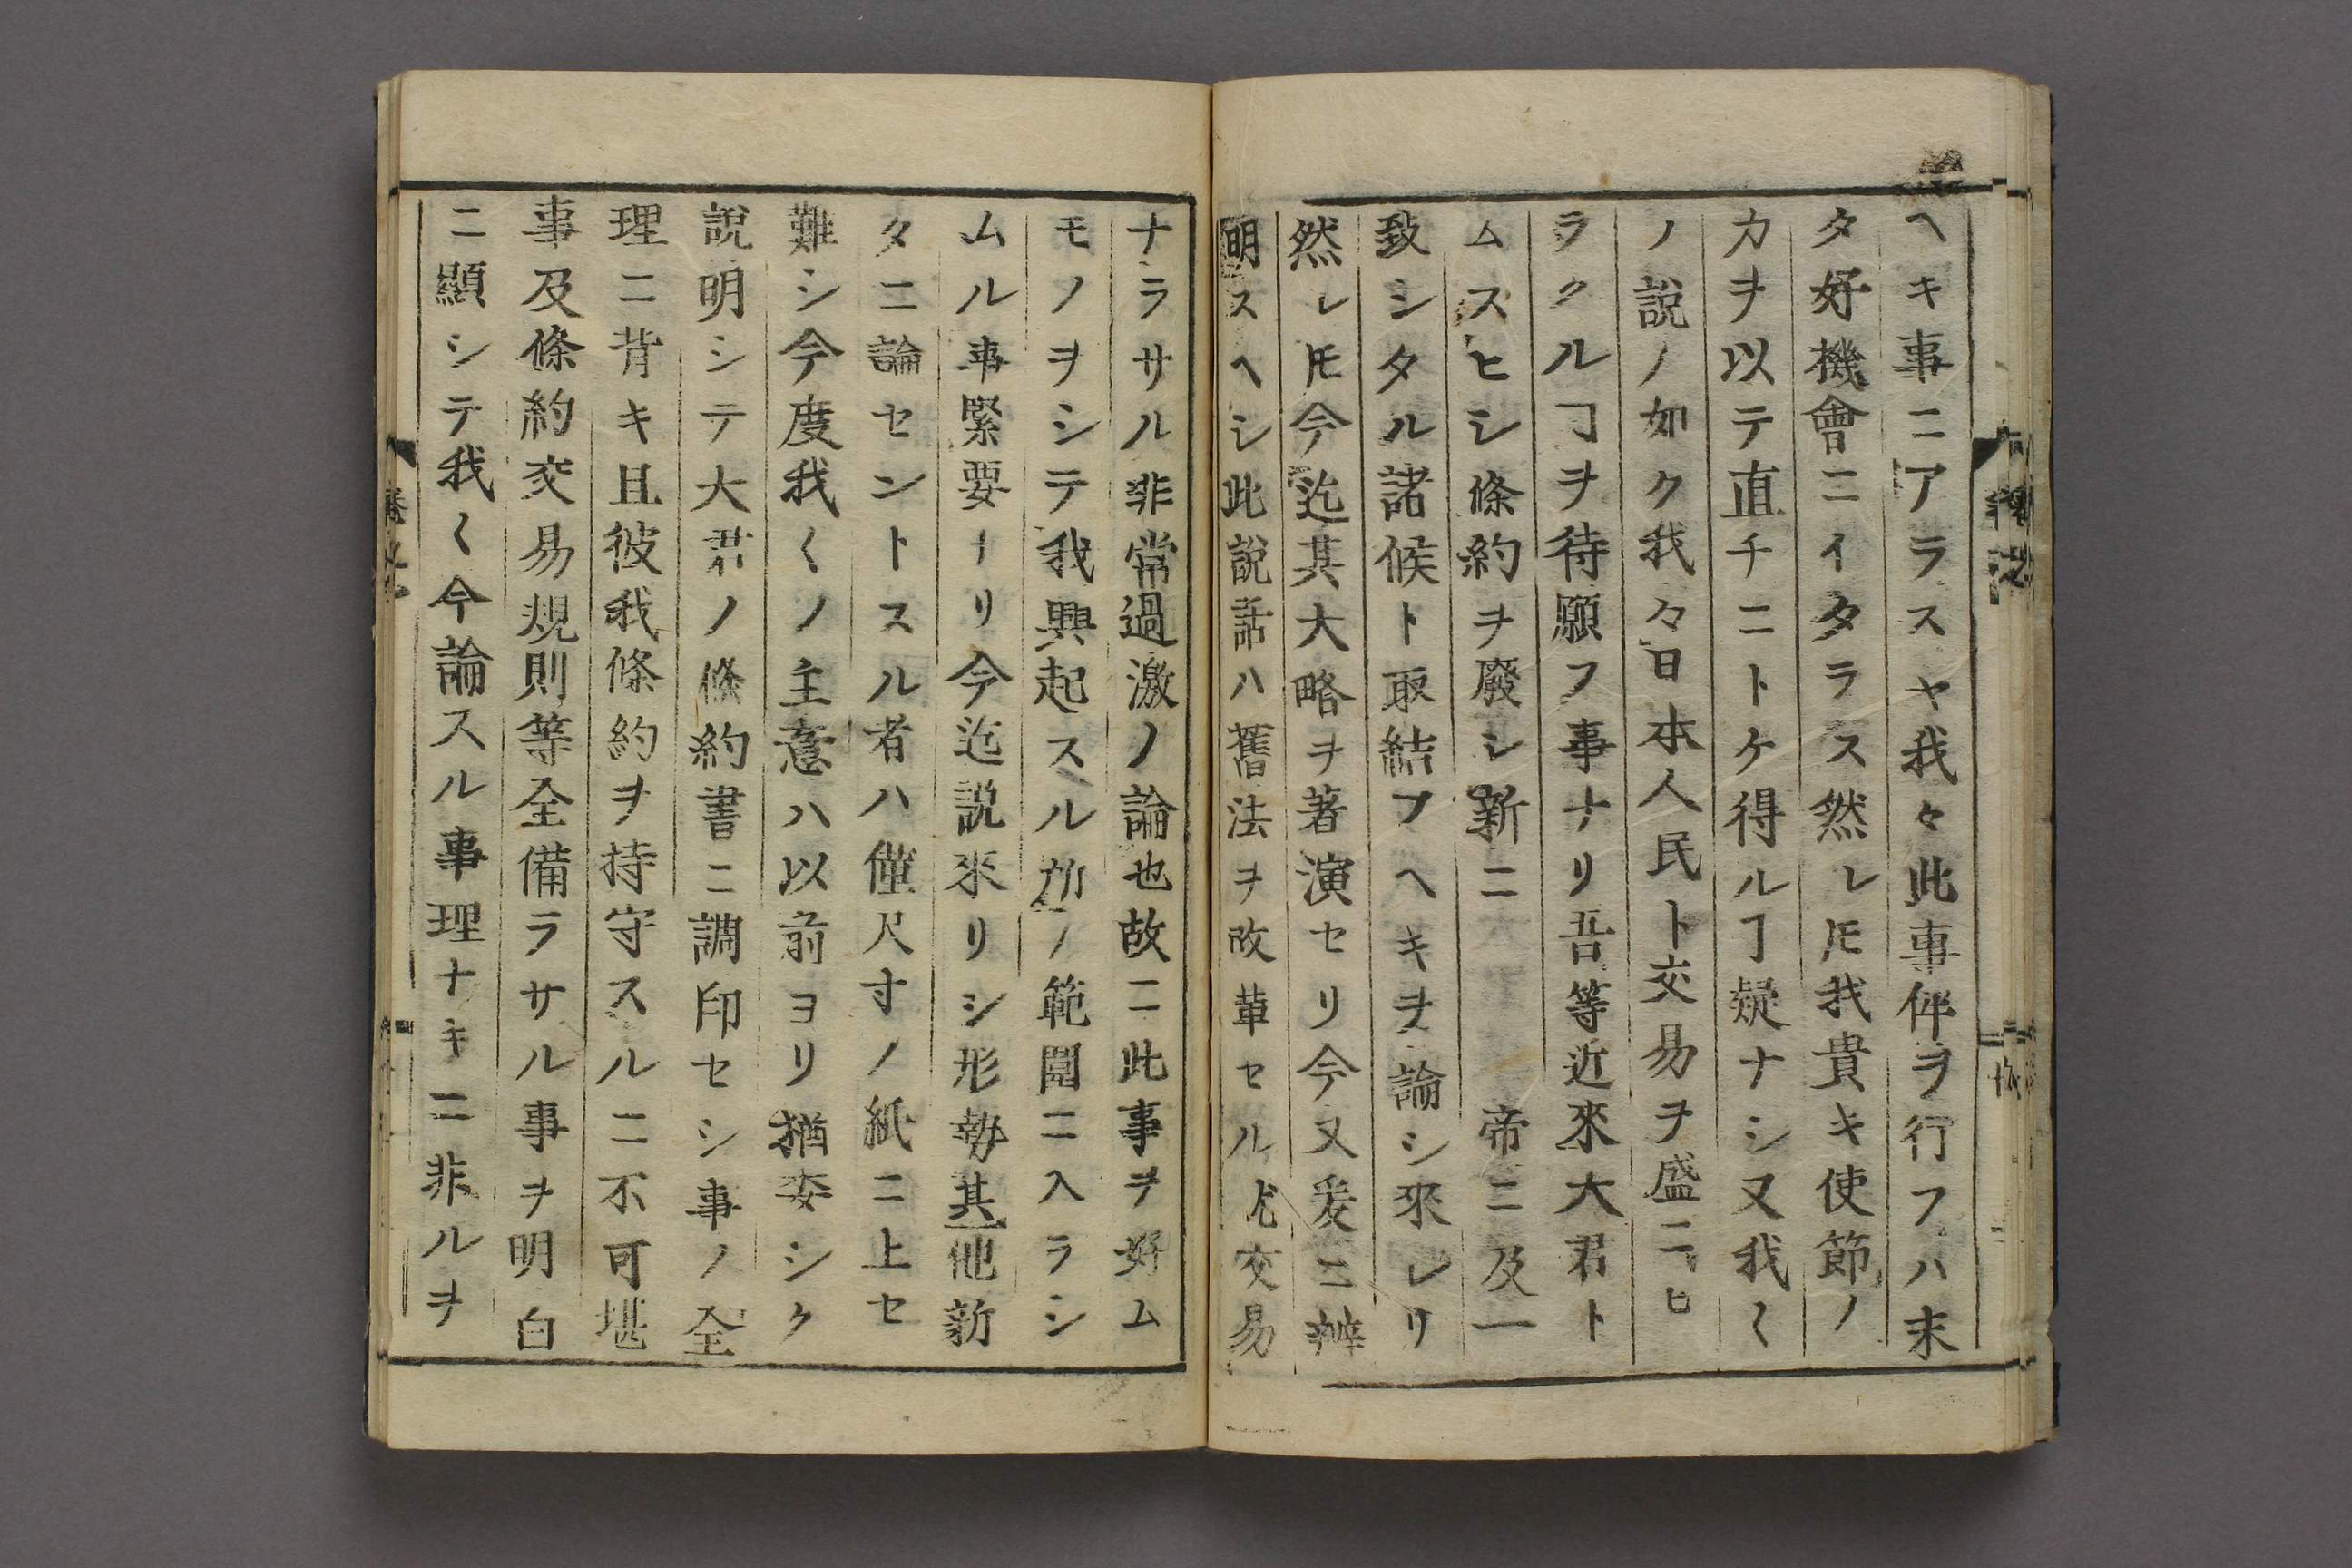 ヘキ事ニアラスヤ我々此事件ヲ行フハ末
タ好機會ニイタラス然レ𪜈我貴キ使節ノ
力ヲ以テ直チニトケ得ルヿ疑ナシ又我〱
ノ説ノ如ク我々日本人民ト交易ヲ盛ニヒ
ラクルヿヲ待願フ事ナリ吾等近來大君ト
ムスヒシ條約ヲ廢シ新ニ　　帝ニ及一
致シタル諸候ト取結フヘキヲ論シ來レリ
然レ𪜈今迄其大略ヲ著演セリ今又爰ニ辨
明スヘシ此説話ハ舊法ヲ改革セル尤交易
ナラサル非常過激ノ論也故ニ此事ヲ好ム
モノヲシテ我興起スル所ノ範圍ニ入ラシ
ムル事緊要ナリ今迄説來リシ形勢其他新
タニ論セントスル者ハ僅尺寸ノ紙ニ上セ
難シ今度我〱ノ主意ハ以前ヨリ猶委シク
説明シテ大君ノ條約書ニ調印セシ事ノ全
理ニ背キ且彼我條約ヲ持守スルニ不可堪
事及條約交易規則等全備ラサル事ヲ明白
ニ顯シテ我〱今論スル事理ナキニ非ルヲ